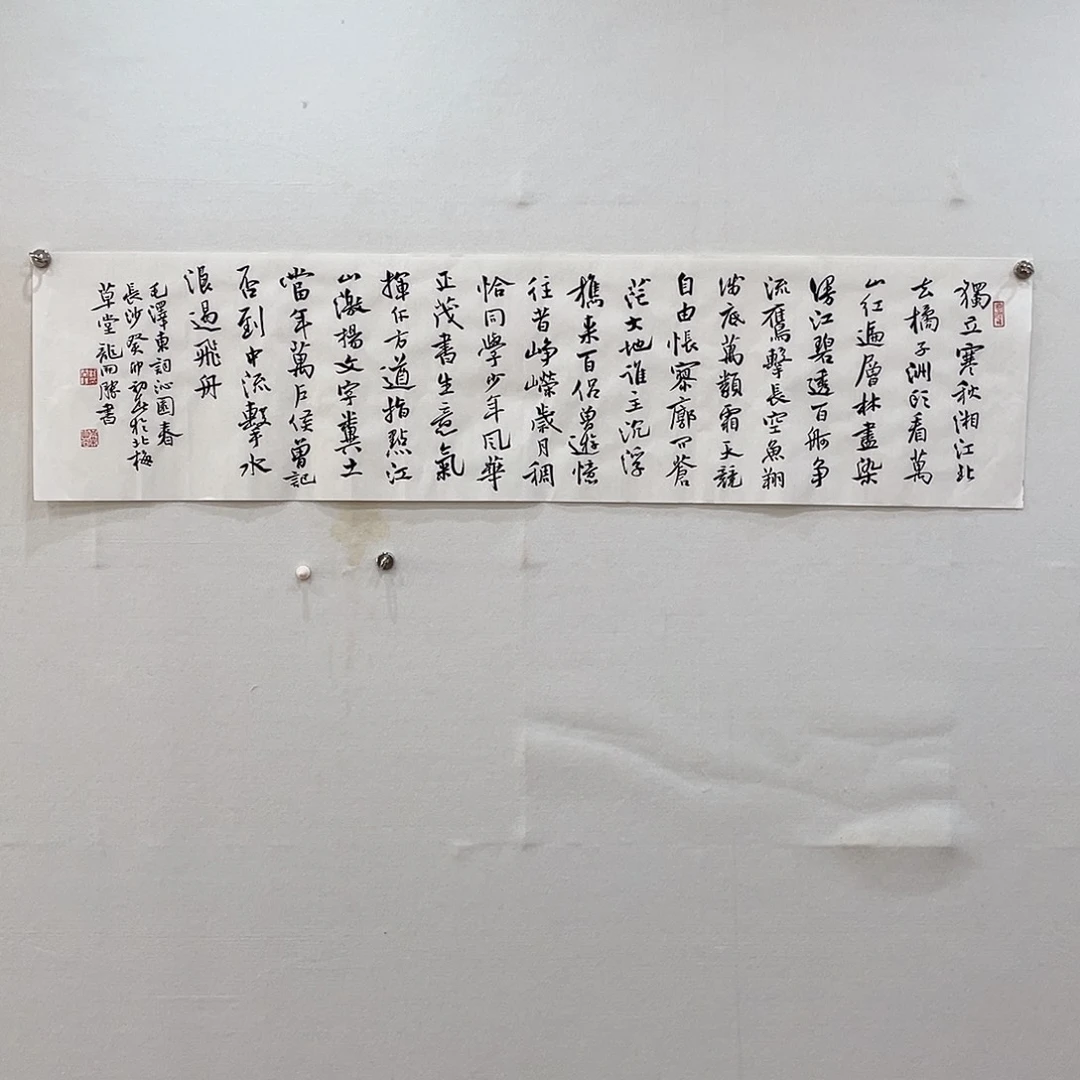 獨立寒秋湘江北
去橘子洲頭看萬
山紅遍層林盡染
漫江碧透百舸爭
流鷹擊長空魚翔
淺底萬類霜天競
自由悵寥廓問蒼
茫大地誰主沉浮
攜來百侶曾遊憶
往昔崢嶸歲月稠
恰同學少年風華
正茂書生意氣
揮斥方遒指點江
山激揚文字糞土
當年萬戶侯曾記
否到中流擊水
浪遏飛舟
毛澤東詞沁園春
長沙癸卯初冬於北梅
草堂龍向勝書